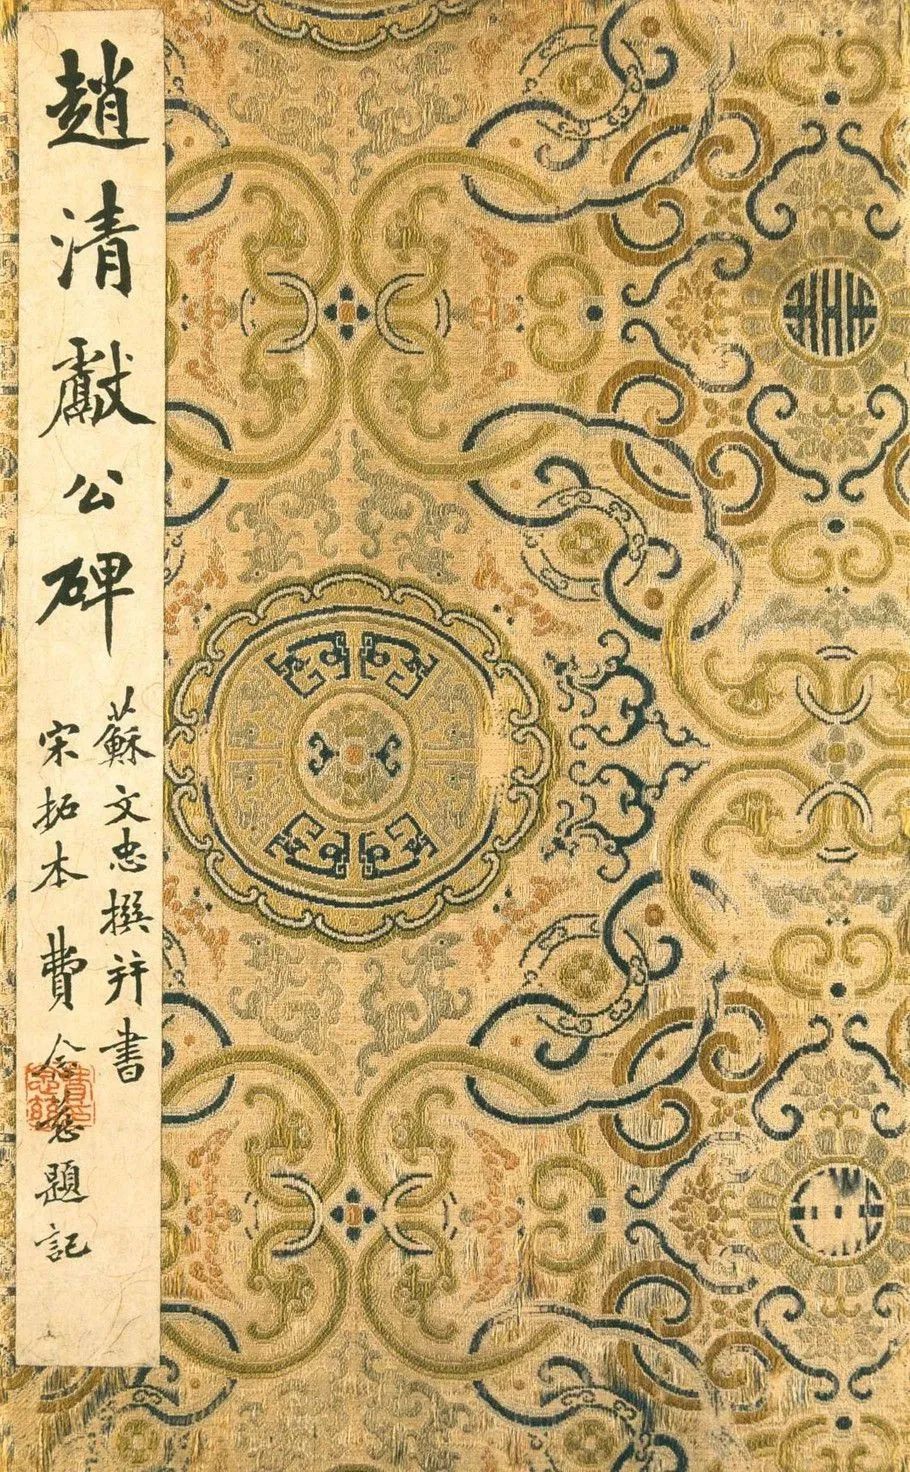 趙清獻公碑
蘇文忠撰并書
宋拓本 費念慈題記
費念慈